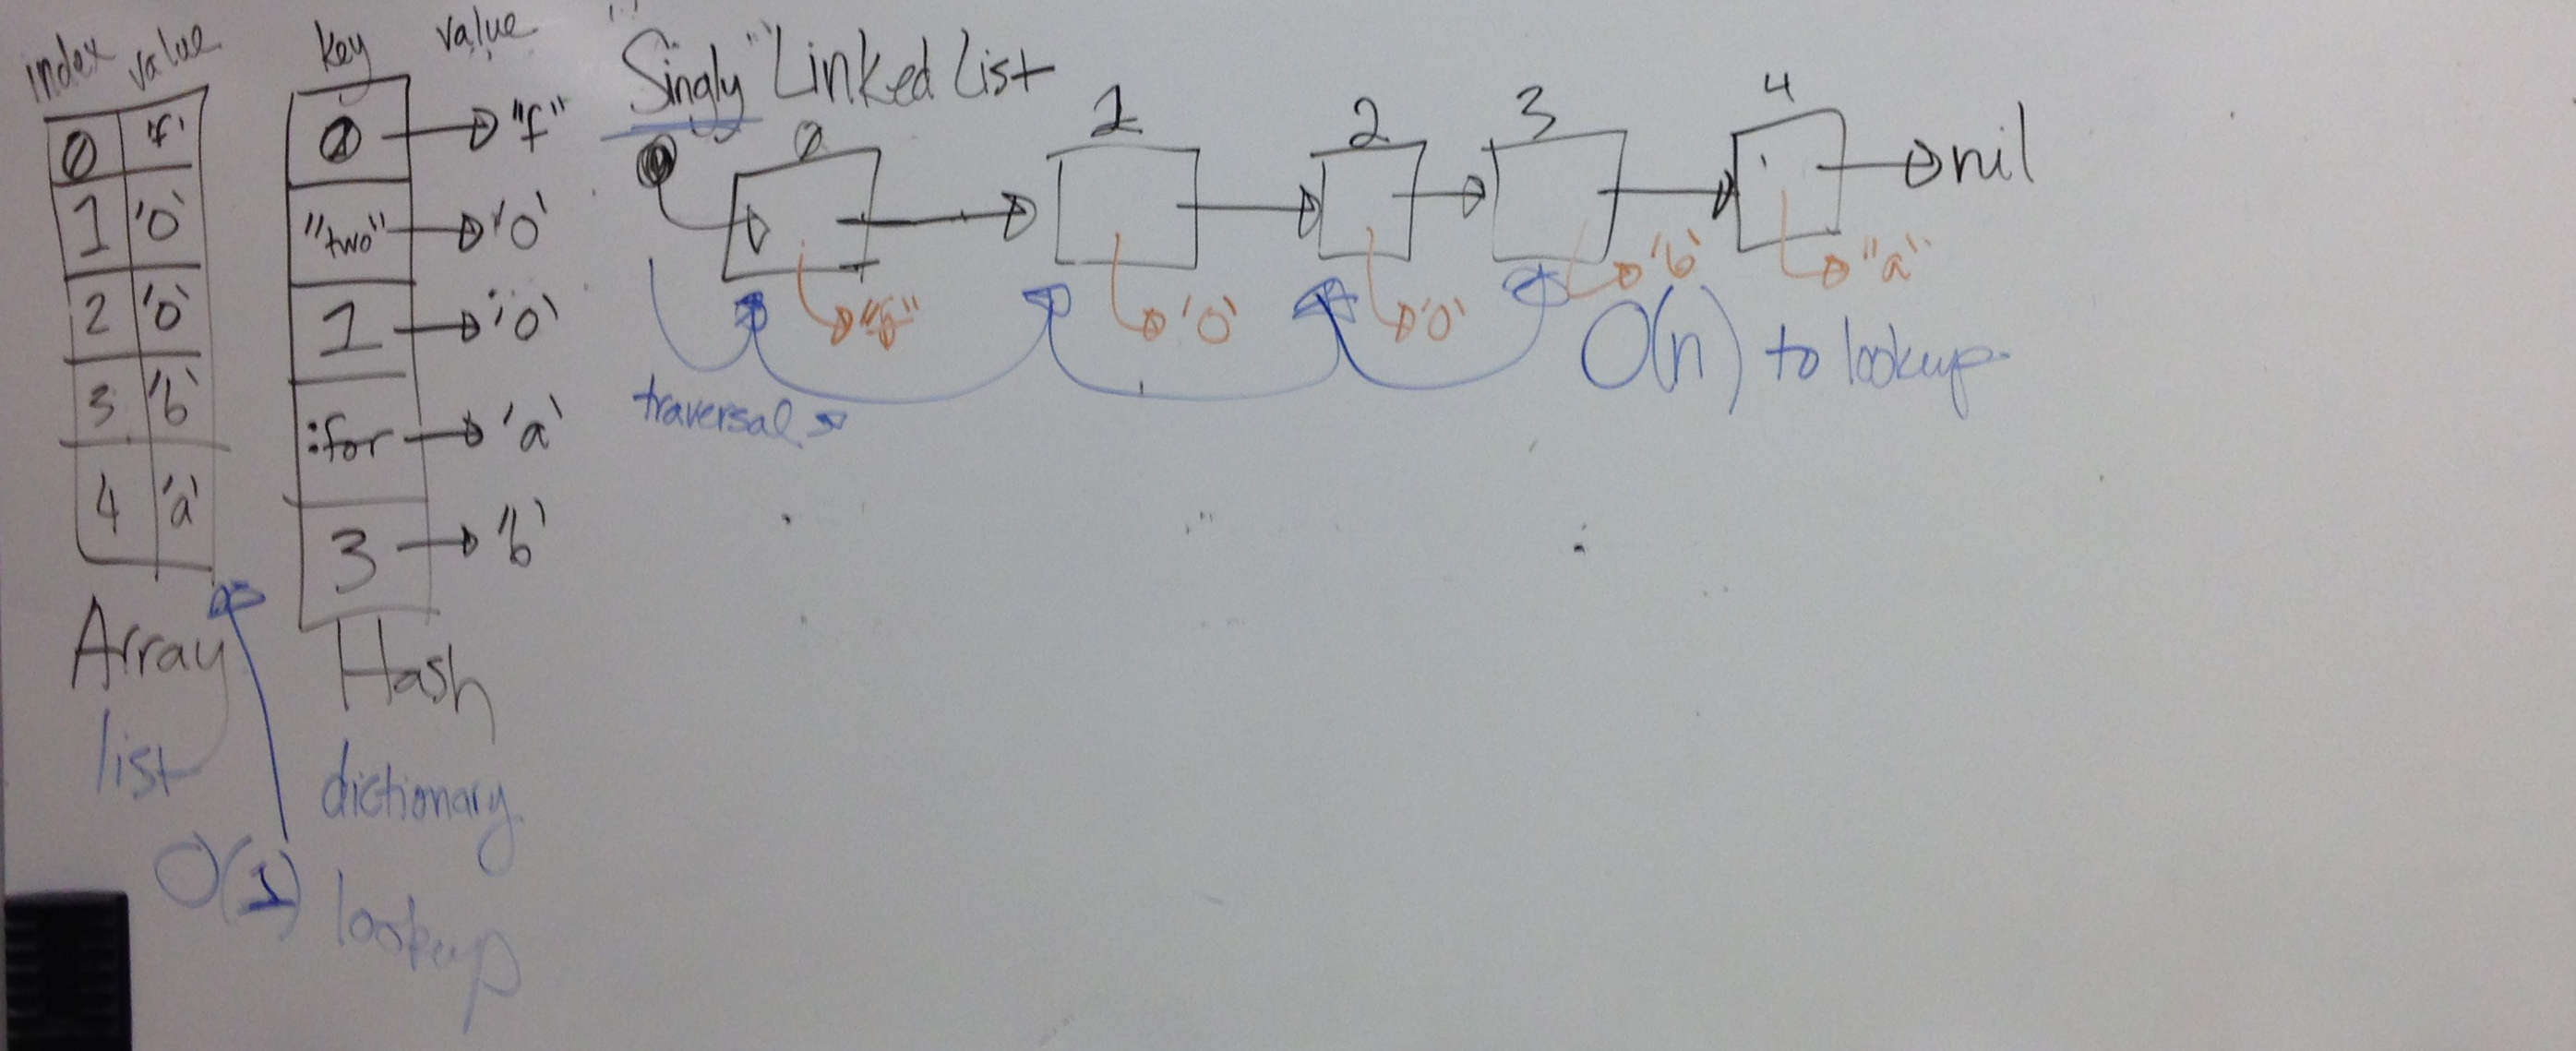 index value
0 'f'
1 'o'
2 'o'
3 'b'
4 'a'
Array
list
O(1) lookup
key value
0 "f"
"two" 'o'
1 'o'
:for 'a'
3 'b'
Hash
dictionary
"Singly" Linked List
0 1 2 3 4
nil
"f" 'o' 'o' 'b' "a'
traversal
O(n) to lookup